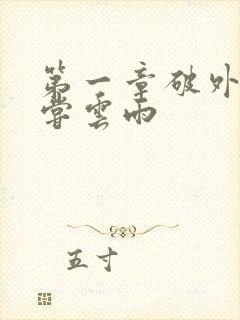 第一章破外
尝雲雨
五寸